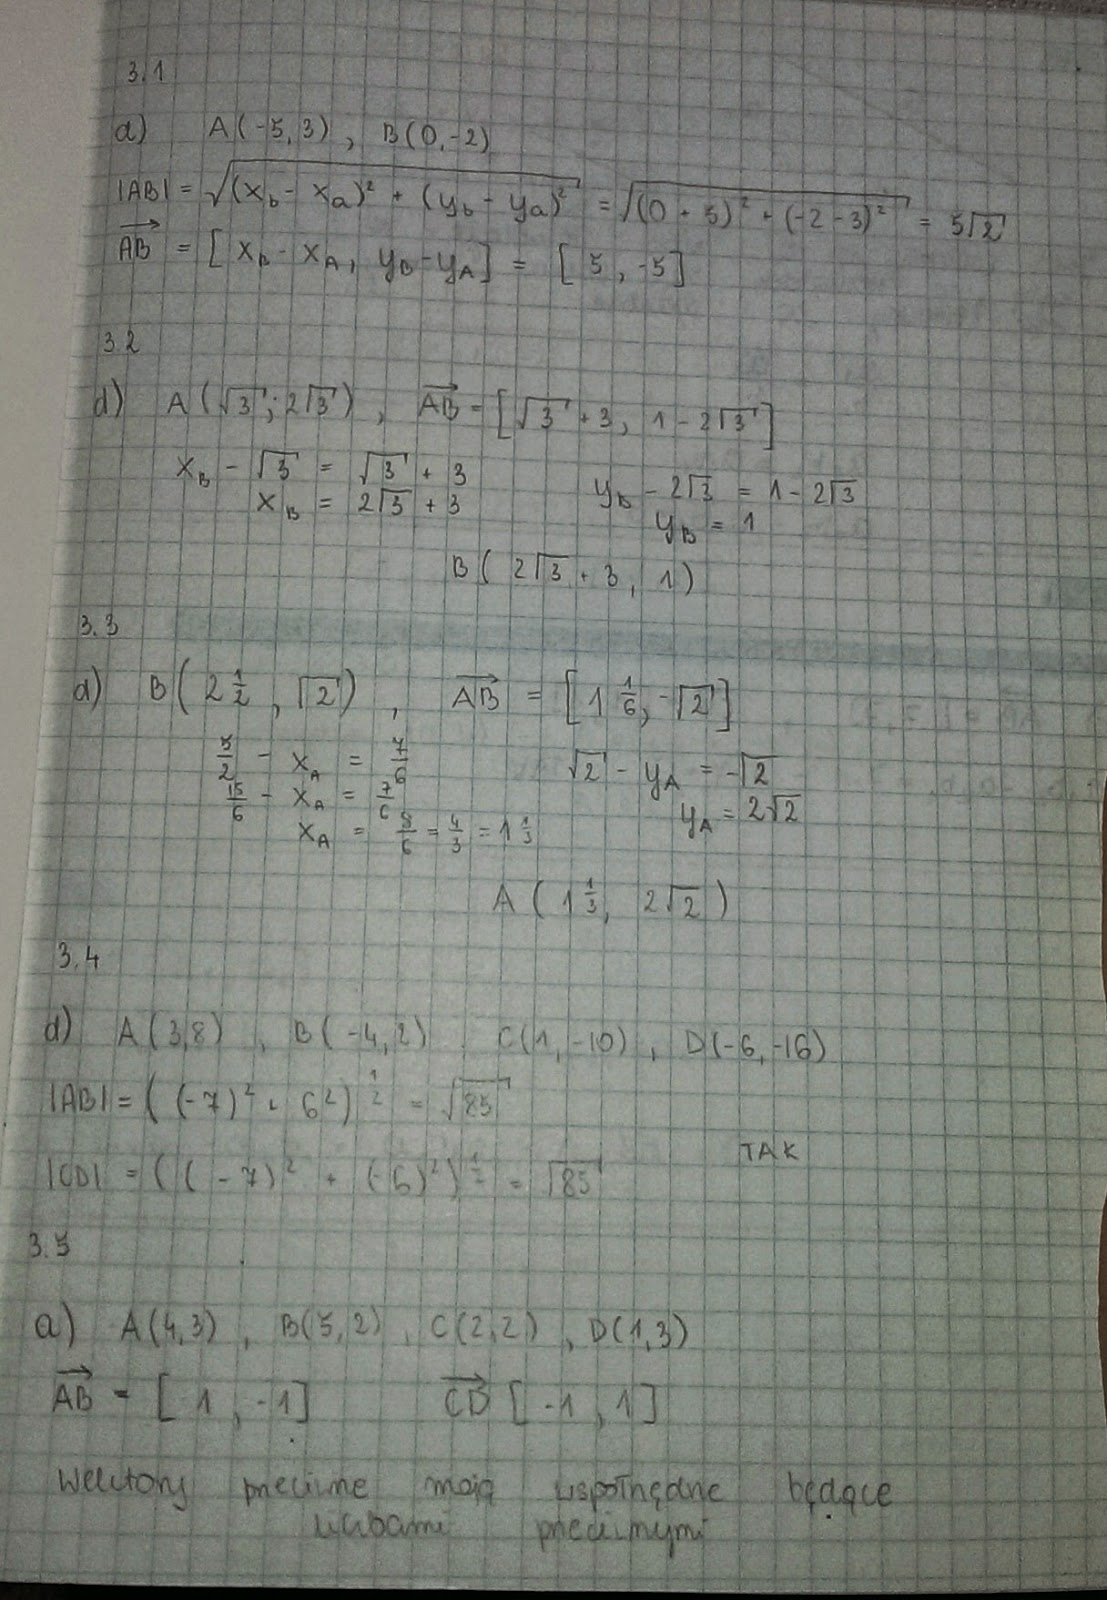 3.1
d) A(-5,3), B(0,-2)
|AB| = √((x_b - x_a)² + (y_b - y_a)²) = √((0+5)² + (-2-3)²) = 5√2
→AB = [x_B - x_A, y_B - y_A] = [5, -5]
3.2
d) A(√3; 2√3), →AB = [√3 + 3, 1 - 2√3]
x_B - √3 = √3 + 3
y_B - 2√3 = 1 - 2√3
x_B = 2√3 + 3
y_B = 1
B(2√3 + 3, 1)
3.3
d) B(2 1/2, √2), →AB = [1 1/6, -√2]
5/2 - x_A = 7/6
√2 - y_A = -√2
15/6 - x_A = 7/6
y_A = 2√2
x_A = 8/6 = 4/3 = 1 1/3
A(1 1/3, 2√2)
3.4
d) A(3,8), B(-4,2), C(1,-10), D(-6,-16)
|AB| = ((-7)² + 6²)^(1/2) = √85
TAK
|CD| = ((-7)² + (-6)²)^(1/2) = √85
3.5
a) A(4,3), B(5,2), C(2,2), D(1,3)
→AB = [1, -1] →CD [-1, 1]
Wektory przeciwne mają współrzędne będące
liczbami przeciwnymi